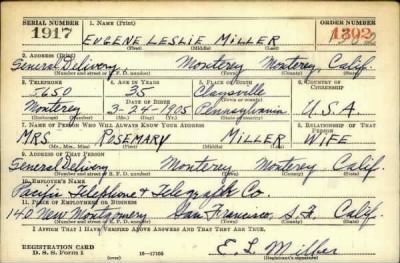 SERIAL NUMBER 1. NAME (Print) ORDER NUMBER
1917 EUGENE LESLIE MILLER 1392
(First) (Middle) (Last)
2. ADDRESS (Print)
General Delivery Monterey Monterey, Calif.
(Number and street or R. F. D. number) (Town) (County) (State)
3. TELEPHONE 4. AGE IN YEARS 5. PLACE OF BIRTH 6. COUNTRY OF CITIZENSHIP
5650 35 Claysville
DATE OF BIRTH (Town or county)
Monterey 3-24-1905 Pennsylvania U.S.A.
(Exchange) (Number) (Mo.) (Day) (Yr.) (State or country)
7. NAME OF PERSON WHO WILL ALWAYS KNOW YOUR ADDRESS 8. RELATIONSHIP OF THAT PERSON
MRS. ROSEMARY MILLER WIFE
(Mr., Mrs., Miss) (First) (Middle) (Last)
9. ADDRESS OF THAT PERSON
General Delivery Monterey Monterey Calif.
(Number and street or R. F. D. number) (Town) (County) (State)
10. EMPLOYER'S NAME
Pacific Telephone & Telegraph Co.
11. PLACE OF EMPLOYMENT OR BUSINESS
140 New Montgomery San Francisco, S.F. Calif.
(Number and street or R. F. D. number) (Town) (County) (State)
I AFFIRM THAT I HAVE VERIFIED ABOVE ANSWERS AND THAT THEY ARE TRUE.
REGISTRATION CARD E. L. Miller
D. S. S. Form 1 (over) 16-17105 (Registrant's signature)